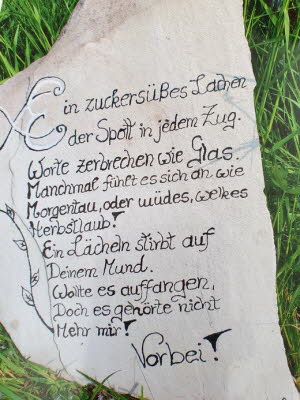 Ein zuckersüßes Lachen
der Spott in jedem Zug.
Worte zerbrechen wie Glas.
Manchmal fühlt es sich an wie
Morgentau, oder müdes, welkes
Herbstlaub!
Ein Lächeln stirbt auf
Deinem Mund.
Wollte es auffangen,
Doch es gehörte nicht
Mehr mir!
Vorbei!